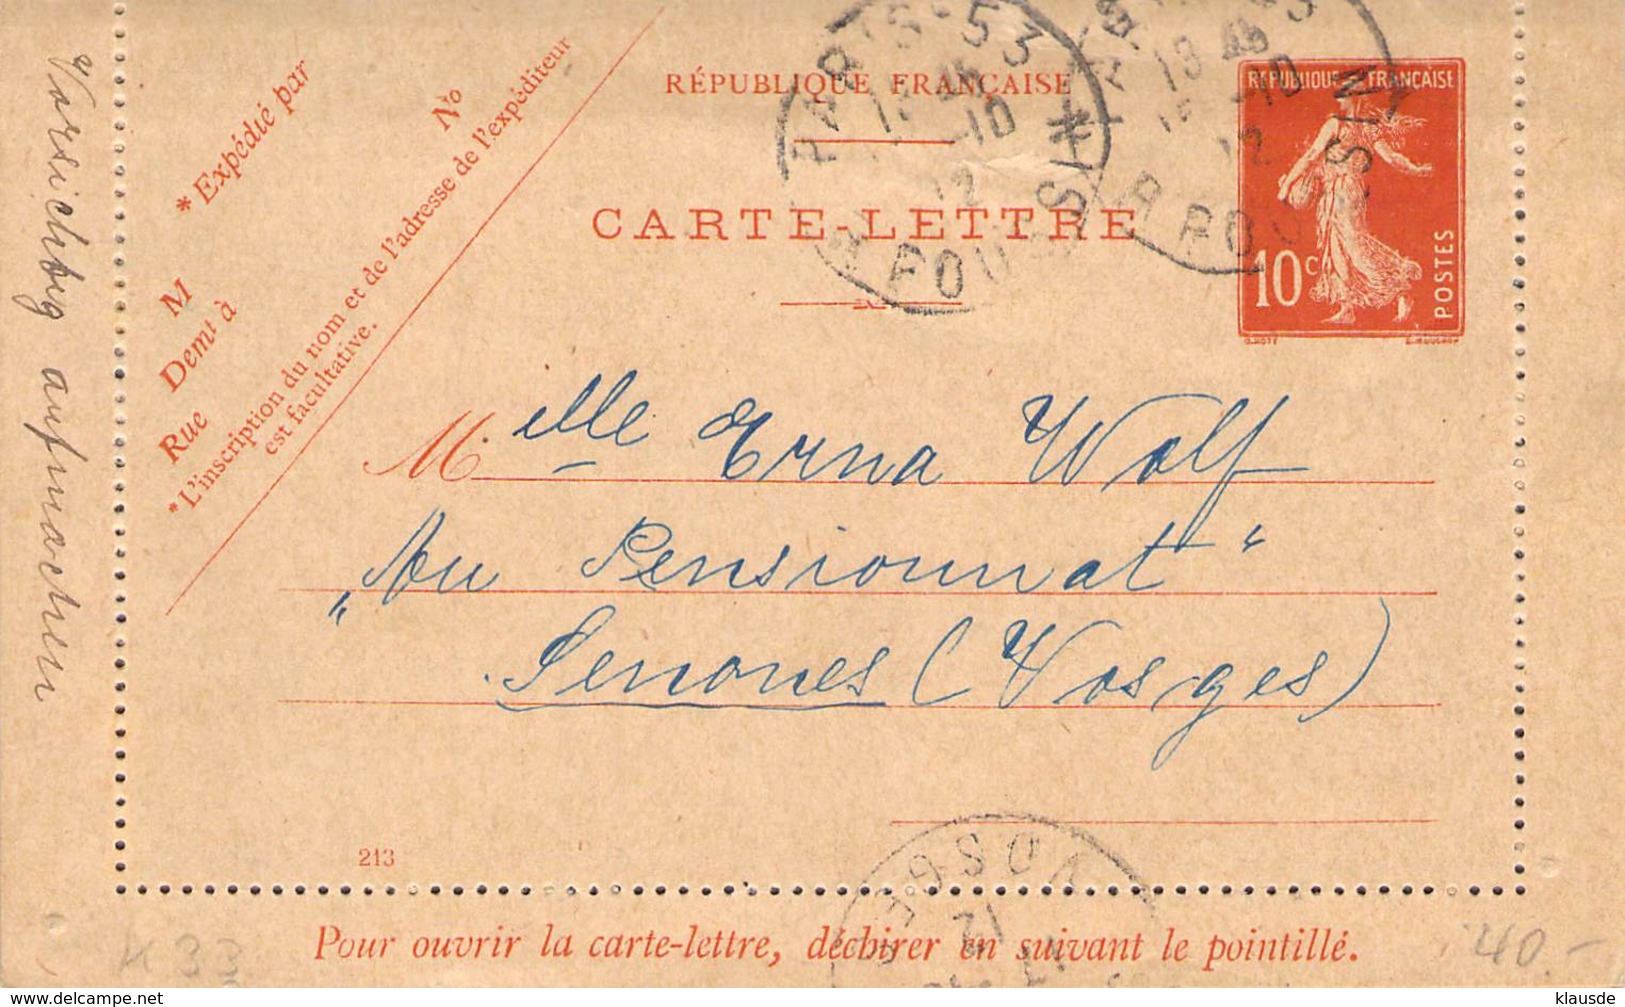 RÉPUBLIQUE FRANÇAISE
CARTE-LETTRE
* Expédié par
No
M
Demt à
Rue
* L'inscription du nom et de l'adresse de l'expéditeur
est facultative.
REPUBLIQUE FRANÇAISE
10c
POSTES
PARIS·53
12
R POUSSIN
*
PARIS·53
12
R POUSSIN
Mlle Erna Wolf
„Au Pensionnat“
Senones (Vosges)
Vorsichtig aufmachen
213
VOSGES
Pour ouvrir la carte-lettre, déchirer en suivant le pointillé.
K 33
40.-
klausde